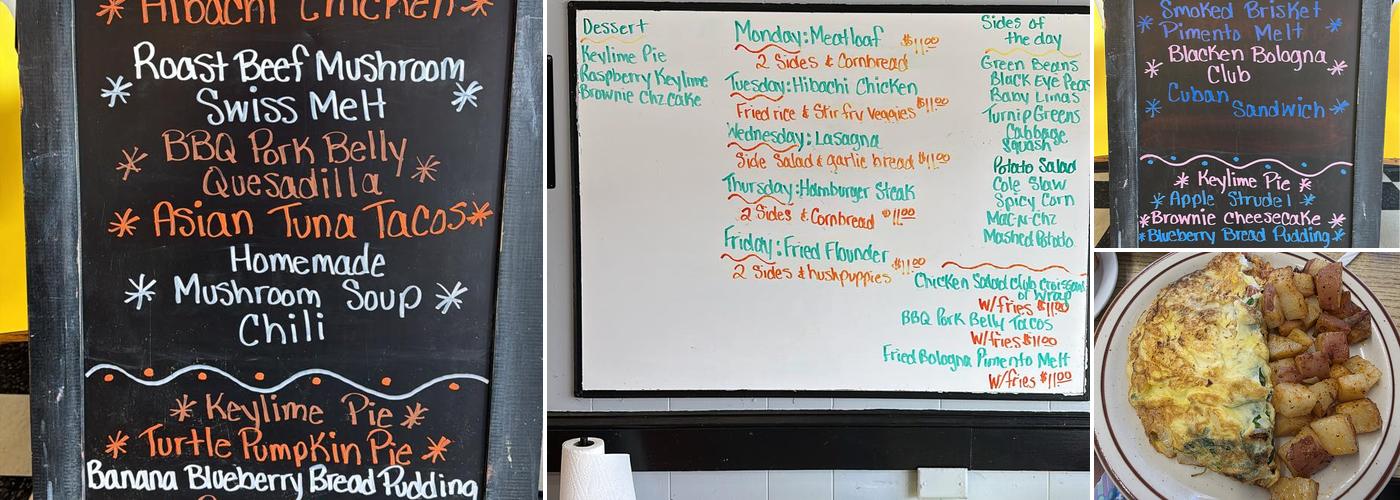 Hibachi Chicken
Roast Beef Mushroom
Swiss Melt
BBQ Pork Belly
Quesadilla
Asian Tuna Tacos
Homemade
Mushroom Soup
Chili
Keylime Pie
Turtle Pumpkin Pie
Banana Blueberry Bread Pudding
Dessert
Keylime Pie
Raspberry Keylime
Brownie Chzcake
Monday: Meatloaf $11.00
2 Sides & Cornbread
Tuesday: Hibachi Chicken
Fried rice & Stir fry Veggies $11.00
Wednesday: Lasagna
Side Salad & garlic bread $11.00
Thursday: Hamburger Steak
2 Sides & Cornbread $11.00
Friday: Fried Flounder
2 Sides & hushpuppies $11.00
Sides of
the day
Green Beans
Black Eye Peas
Baby Limas
Turnip Greens
Cabbage
Squash
Potato Salad
Cole Slaw
Spicy Corn
Mac-n-Chz
Mashed Potato
Chicken Salad Club Croissant
or Wrap
W/fries $11.00
BBQ Pork Belly Tacos
W/fries $11.00
Fried Bologna Pimento Melt
W/fries $11.00
Smoked Brisket
Pimento Melt
Blacken Bologna
Club
Cuban
Sandwich
Keylime Pie
Apple Strudel
Brownie Cheesecake
Blueberry Bread Pudding